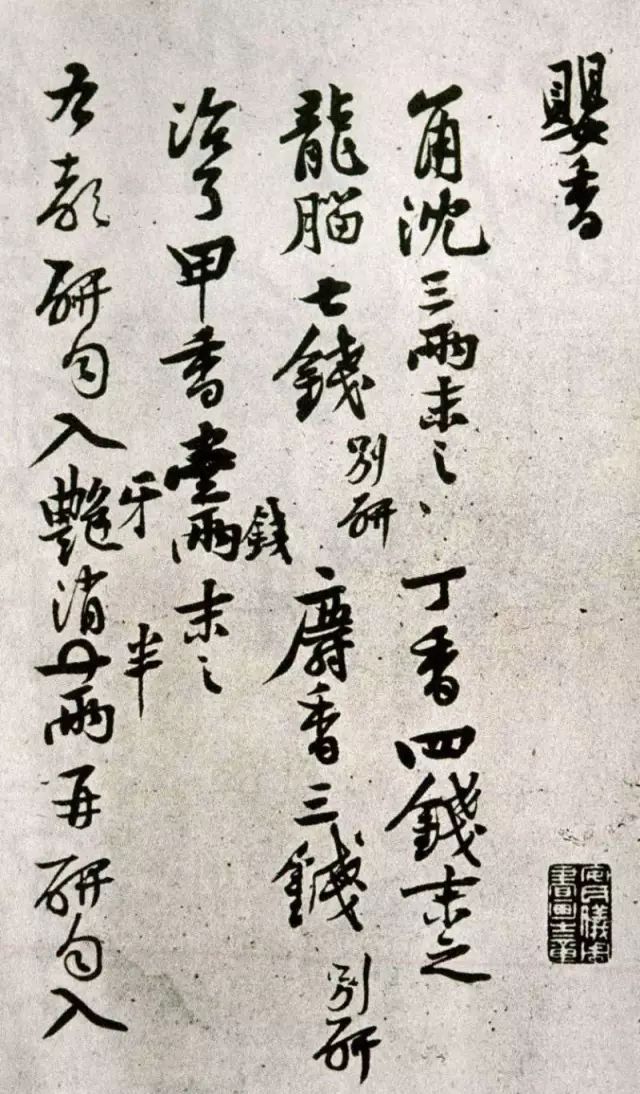 嬰香
角沈三兩末之丁香四錢末之
龍腦七錢別研麝香三錢別研
治了甲香壹兩錢末之
右都研勻入艷牙消半兩再研勻入
安氏儀周書畫之章